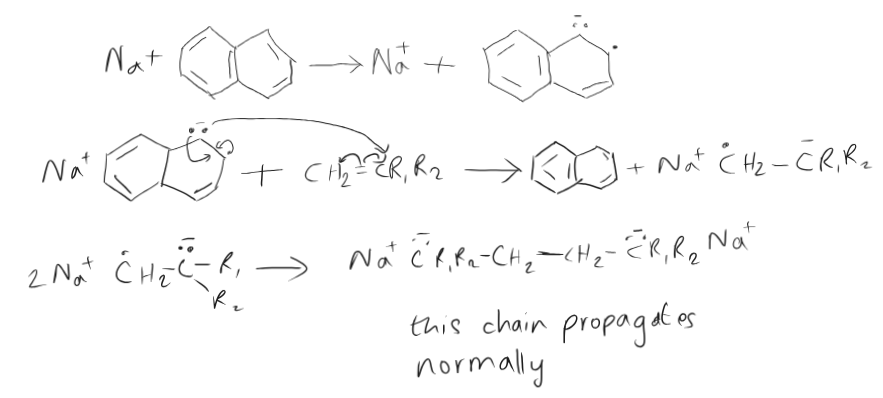 Na + → Na⁺ +
Na⁺ + CH₂=CR₁R₂ → + Na⁺ ĊH₂-C̄R₁R₂
2Na⁺ ĊH₂-C̄̈-R₁ → Na⁺ C̄̈R₁R₂-CH₂-CH₂-C̄̈R₁R₂ Na⁺
R₂
this chain propagates
normally